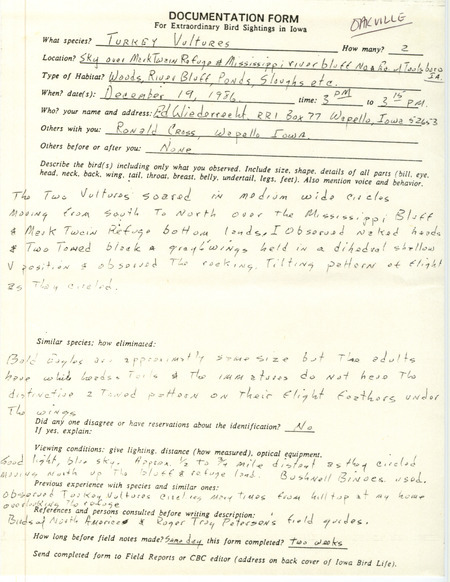 DOCUMENTATION FORM
For Extraordinary Bird Sightings in Iowa
OAKVILLE
What species? Turkey Vultures How many? 2
Location? Sky over Mark Twain Refuge & Mississippi river bluff No of Toolsboro IA.
Type of Habitat? Woods, River Bluff Ponds, Sloughs etc
When? date(s): December 19, 1986 time: 3 PM to 3 15 P.M.
Who? your name and address: Ed Wiederrecht, RR1 Box 77 Wapello, Iowa 52653
Others with you: Ronald Cross, Wapello Iowa.
Others before or after you: None
Describe the bird(s) including only what you observed. Include size, shape, details of all parts (bill, eye,
head, neck, back, wing, tail, throat, breast, belly, undertail, legs, feet). Also mention voice and behavior.
The Two Vultures soared in medium wide circles
moving from South To North over The Mississippi Bluff
& Mark Twain Refuge bottom lands. I Observed naked heads
& Two Toned black & gray wings held in a dihedral shallow
V position & observed The rocking, Tilting pattern of flight
as They circled.
Similar species; how eliminated:
Bald Eagles are approximatly same size but The adults
have white heads & Tails & The immatures do not have The
distinctive 2 Toned pattern on Their flight feathers under
The wings
Did any one disagree or have reservations about the identification? No
If yes, explain:
Viewing conditions: give lighting, distance (how measured), optical equipment.
Good light, blue sky. Approx. 1/2 To 3/4 mile distant as They circled
moving north up The bluff & refuge land. Bushnell Binocs. used.
Previous experience with species and similar ones:
Observed Turkey Vultures circling many Times from hilltop at my home
overlooking The refuge
References and persons consulted before writing description:
Birds of North America & Roger Tory Petersons field guides.
How long before field notes made? Same day this form completed? Two weeks
Send completed form to Field Reports or CBC editor (address on back cover of Iowa Bird Life).